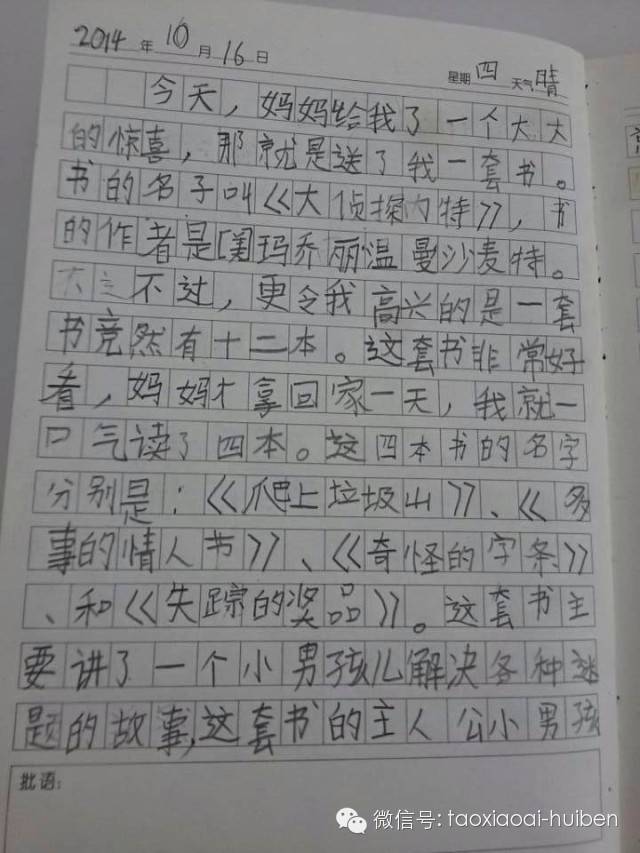 2014 年 10 月 16 日
星期 四 天气 晴
今天，妈妈给我了一个大大
的惊喜，那就是送了我一套书。
书的名子叫《大侦探内特》，书
的作者是[美玛乔丽温曼沙麦特。
不过，更令我高兴的是一套
书竟然有十二本。这套书非常好
看，妈妈才拿回家一天，我就一
口气读了四本。这四本书的名字
分别是：《爬上垃圾山》、《多
事的情人节》、《奇怪的字条》
、和《失踪的奖品》。这套书主
要讲了一个小男孩儿解决各种谜
题的故事，这套书的主人公小男孩
批语：
微信号: taoxiaoai-huiben